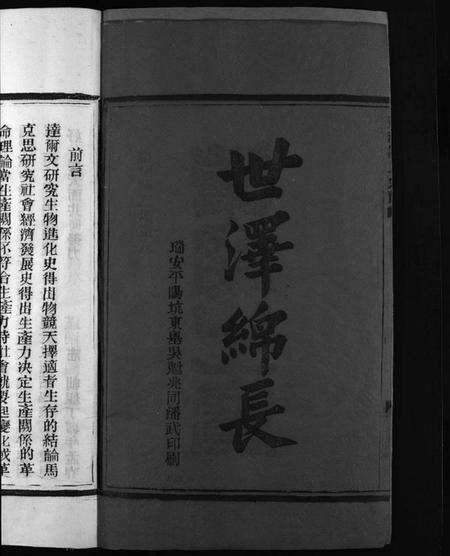 世澤綿長
瑞安平陽坑東嘉吳魁兆同潘武印刷
前言
達爾文研究生物進化史得出物競天擇適者生存的結論馬
克思研究社會經濟發展史得出生產力決定生產關係的革
命理論當生產關係不符合生產力時社會就要起變化或革